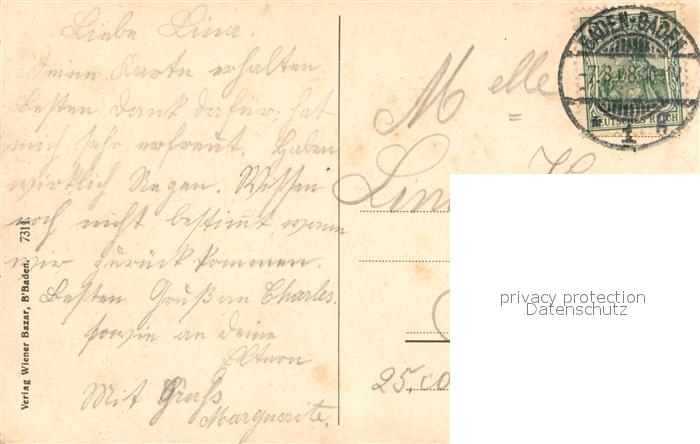 Liebe Lina.
Deine Karte erhalten
Besten Dank dafür, hat
mich sehr erfreut. Haben
wirklich Regen. Wissen
noch nicht bestimmt, wann
wir zurück kommen.
Besten Gruß an Charles.
sowie an deine
Eltern
Mit Gruß
Marguerite.
Verlag Wiener Bazar, B'Baden. 7311
Melle
BADEN-BADEN
DEUTSCHES REICH
privacy protection
Datenschutz